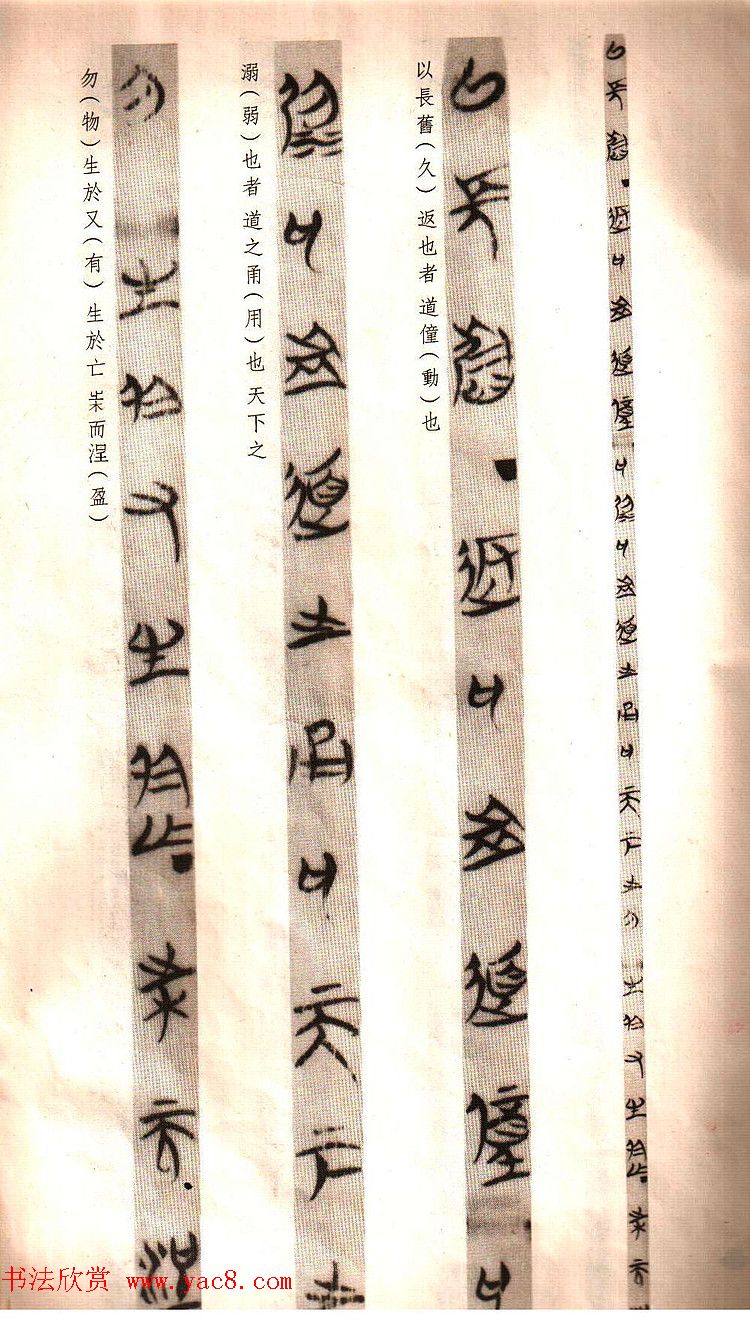 以長舊（久）返也者 道僮（動）也
溺（弱）也者 道之甬（用）也 天下之
勿（物）生於又（有）生於亡 𣎵而涅（盈）
书法欣赏 www.yac8.com